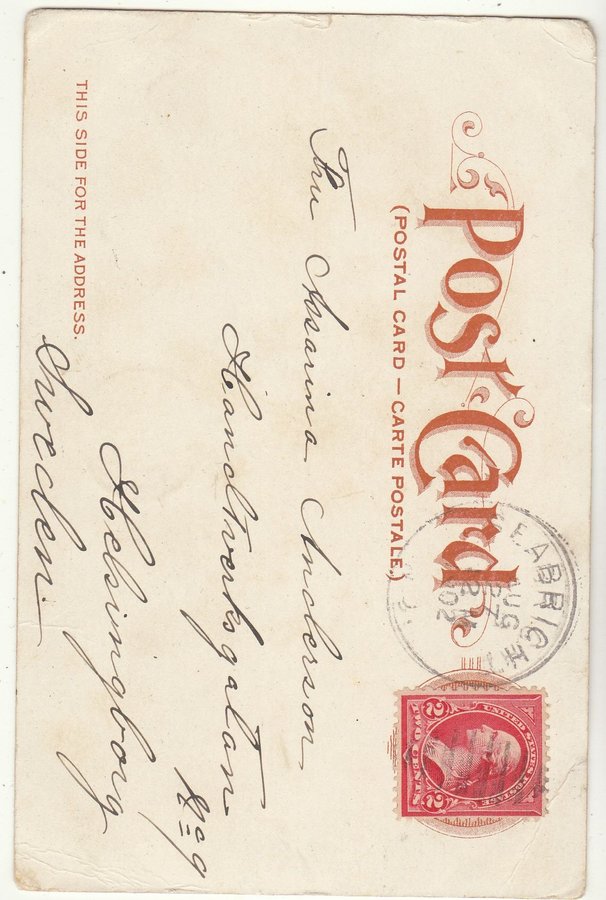 Post Card.
(POSTAL CARD — CARTE POSTALE.)
SEABRIGHT
AUG
7
12 M
1902
N.J.
UNITED STATES POSTAGE
2 2
TWO CENTS
Fru Assarina Anderson
Handtverksgatan
No 9
Helsingborg
Sweden.
THIS SIDE FOR THE ADDRESS.